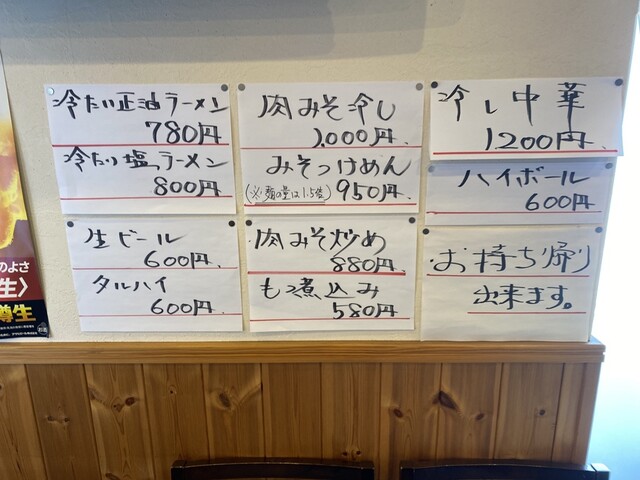 冷たい正油ラーメン
780円
冷たい塩ラーメン
800円
肉みそ冷し
1,000円
みそつけめん
(※麺の量は1.5倍) 950円
冷し中華
1200円
ハイボール
600円
生ビール
600円
タルハイ
600円
肉みそ炒め
880円
もつ煮込み
580円
お持ち帰り
出来ます。
のよさ
生〉
樽生